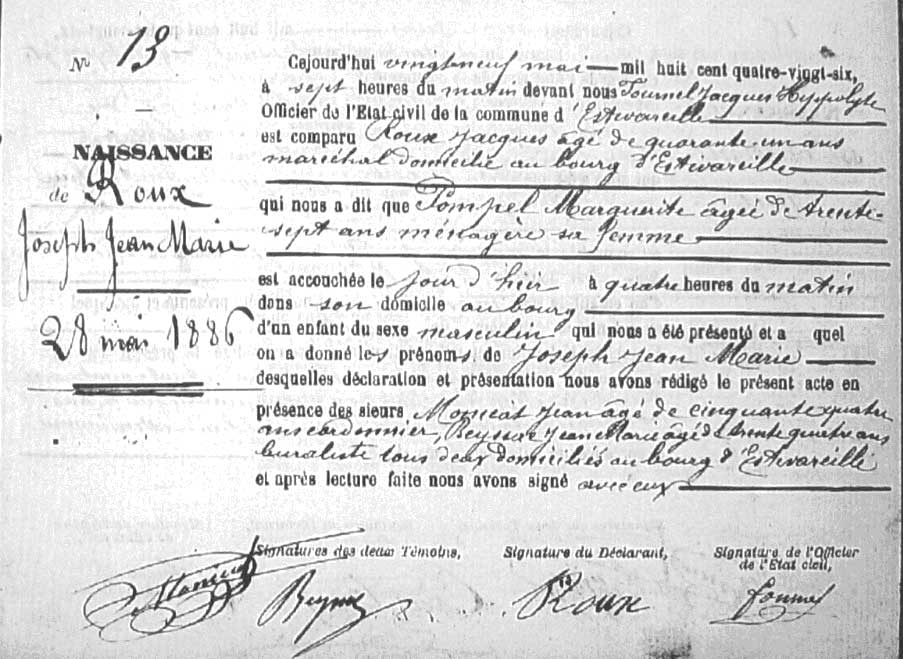 N° 13
NAISSANCE
de Roux
Joseph Jean Marie
28 mai 1886
Cejourd'hui vingtneuf mai mil huit cent quatre-vingt-six,
à sept heures du matin devant nous Tournel Jacques Hippolyte
Officier de l'Etat civil de la commune d'Estivareille
est comparu Roux Jacques âgé de quarante un ans
maréchal domicilié au bourg d'Estivareille
qui nous a dit que Pompel Marguerite âgée de trente-
sept ans ménagère sa femme
est accouchée le jour d'hier à quatre heures du matin
dans son domicile au bourg
d'un enfant du sexe masculin qui nous a été présenté et a quel
on a donné les prénoms de Joseph Jean Marie
desquelles déclaration et présentation nous avons rédigé le présent acte en
présence des sieurs Jean âgé de cinquante quatre
ans cordonnier, Beyssac Jean Marie âgé de trente quatre ans
buraliste tous deux domiciliés au bourg d'Estivareille
et après lecture faite nous avons signé avec eux
Signatures des deux Témoins,
Signature du Déclarant,
Signature de l'Officier
de l'Etat civil,
Roux